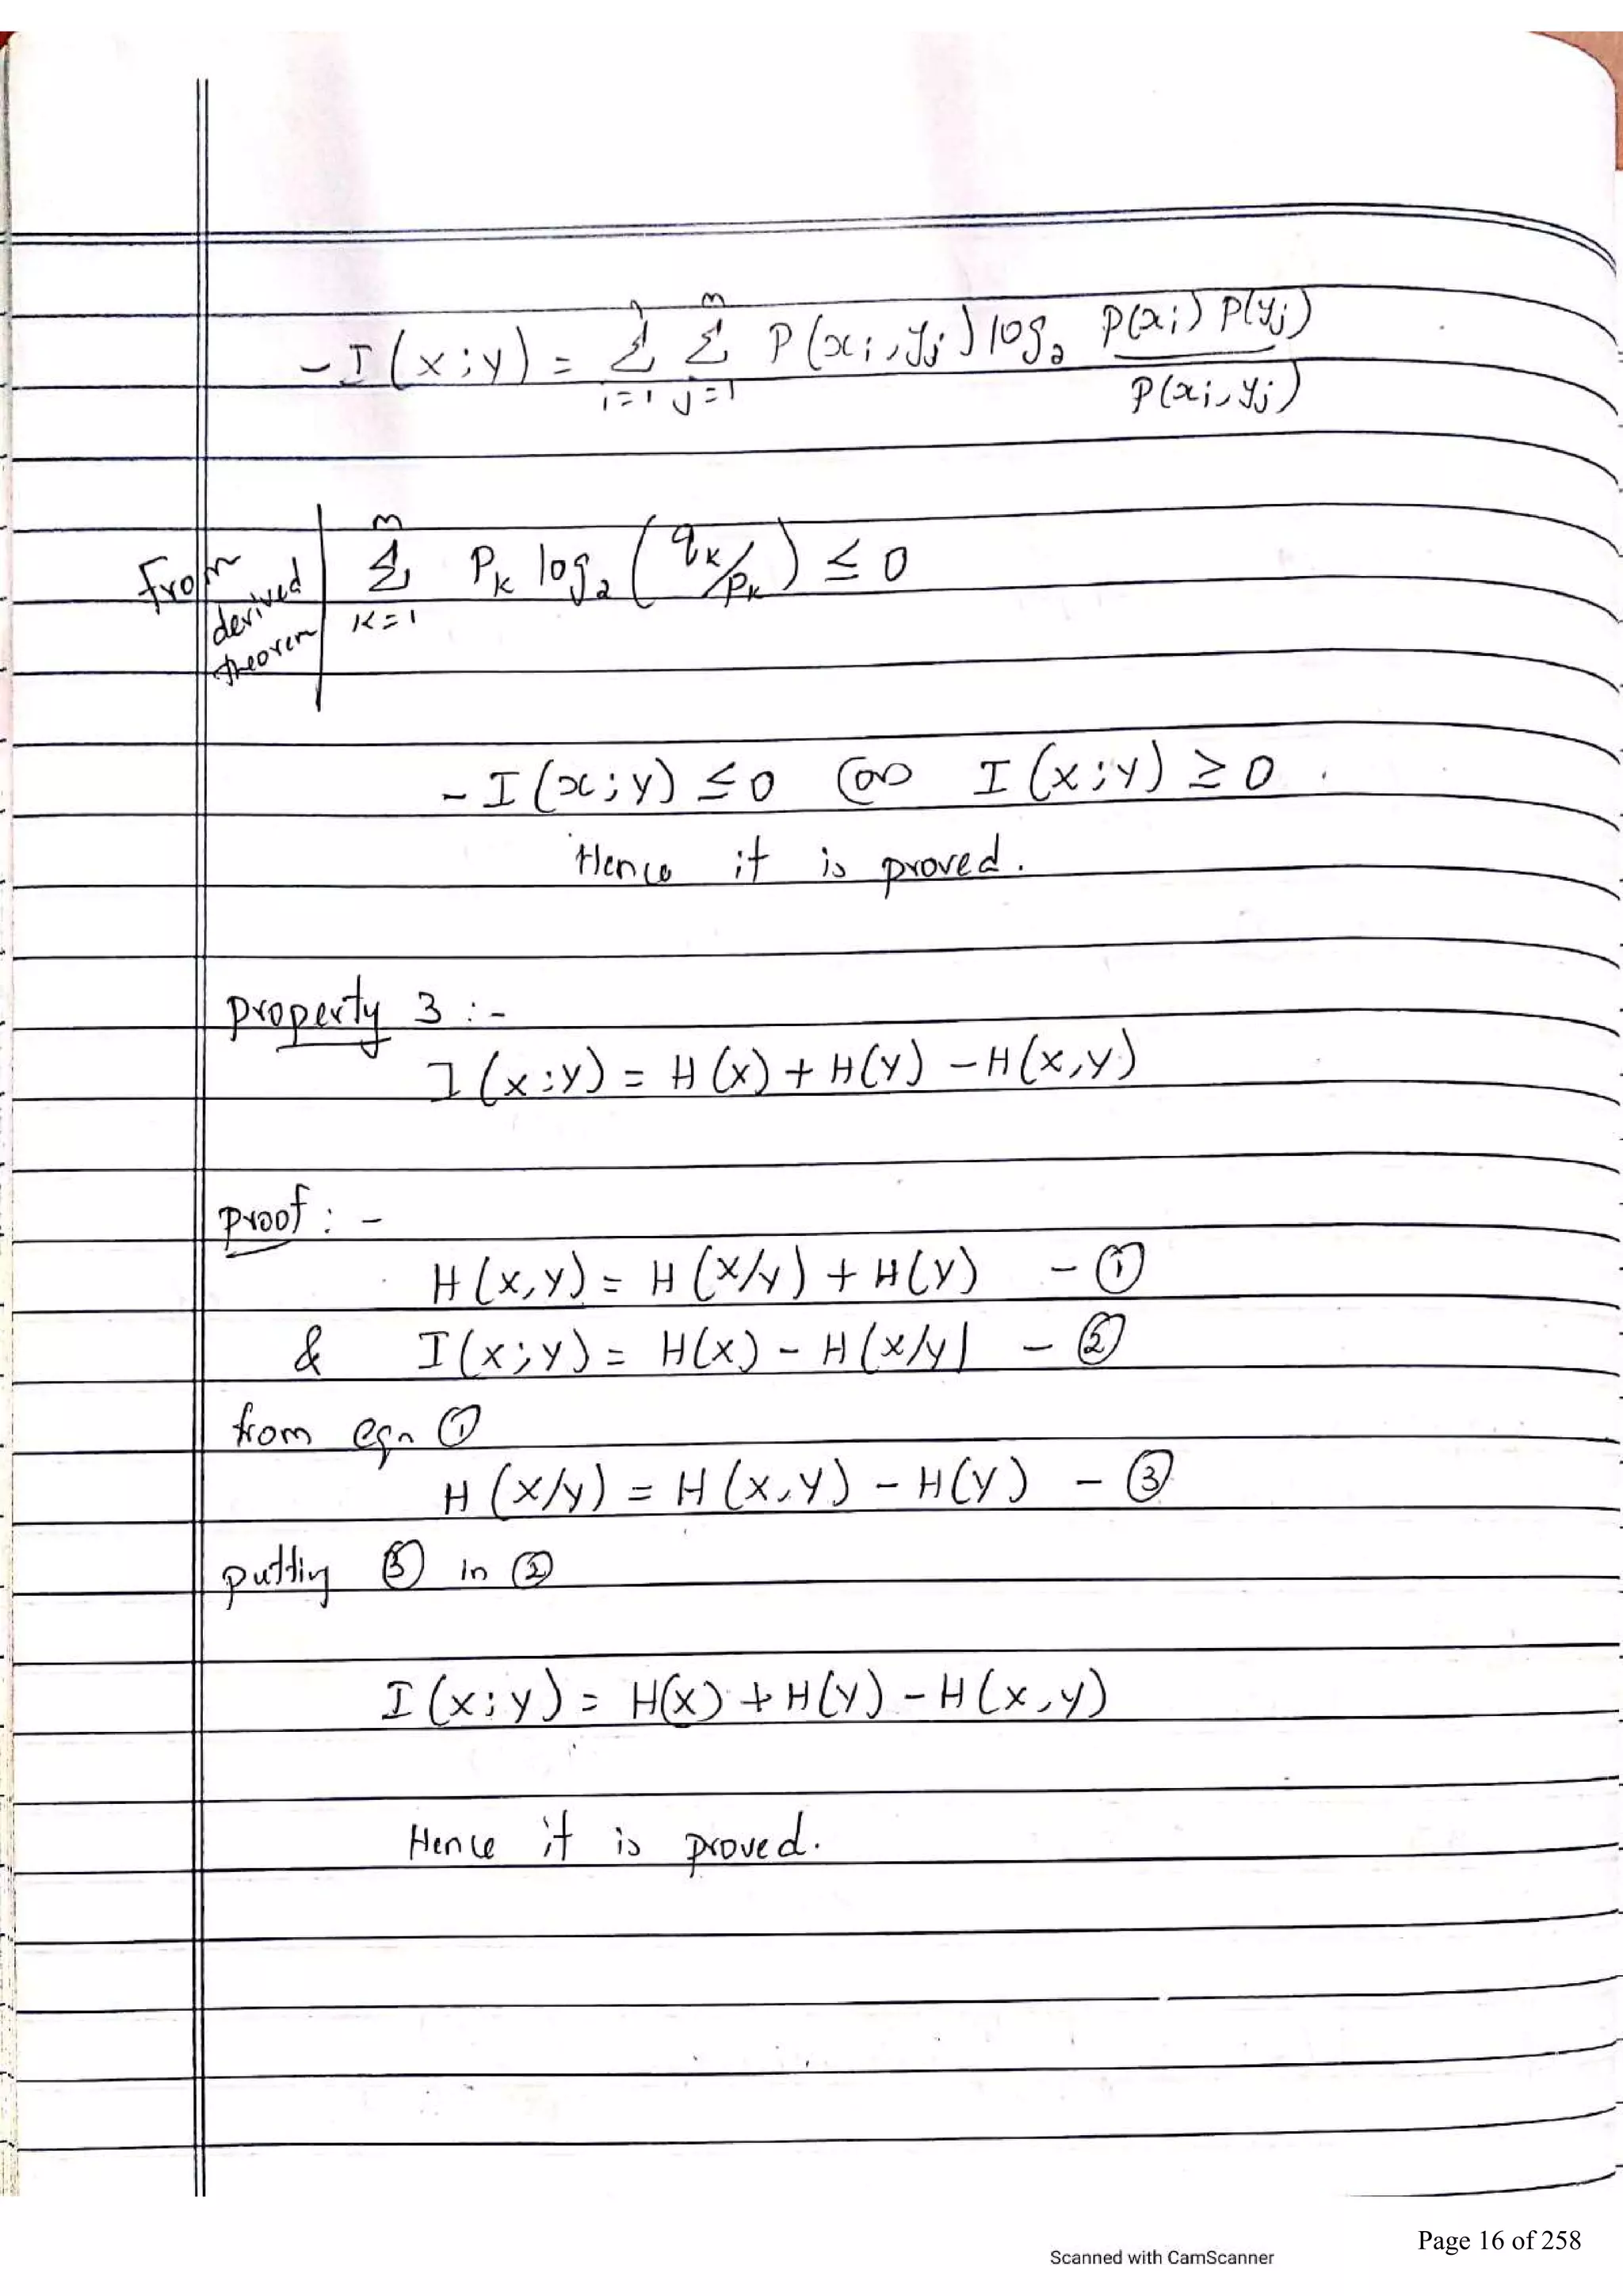 -I(x;y) = n∑i=1 m∑j=1 P(xi,yj) log2 P(xi) P(yj) / P(xi,yj)
From derived theorem | m∑k=1 Pk log2 (qk/pk) ≤ 0
-I(x;y) ≤ 0 (or) I(x;y) ≥ 0.
Hence it is proved.
property 3 :-
I(x:y) = H(x) + H(y) - H(x,y)
proof: -
H(x,y) = H(x/y) + H(y) - ①
& I(x;y) = H(x) - H(x/y) - ②
from eqn ①
H(x/y) = H(x,y) - H(y) - ③
putting ③ in ②
I(x;y) = H(x) + H(y) - H(x,y)
Hence it is proved.
Page 16 of 258
Scanned with CamScanner